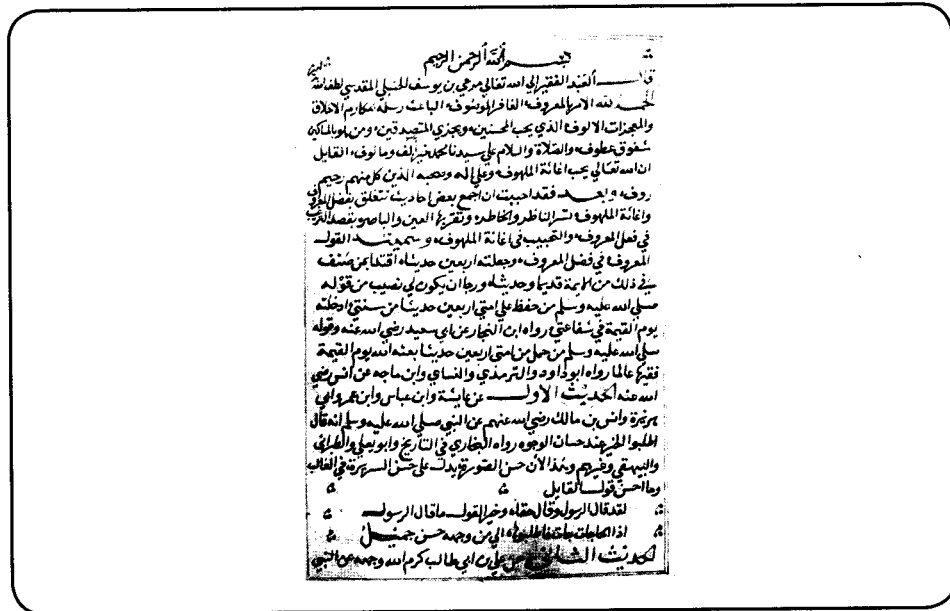 بسم الله الرحمن الرحيم
قال العبد الفقير إلي الله تعالي مرعي بن يوسف الحنبلي المقدسي لطف الله
الحمد لله الامر بالمعروف الغافر الموصوف الباعث رسله بمكارم الاخلاق
والمعجزات الالوف الذي يحب المحسنين ويجزي المتصدقين ومن هو بالمساكين
شفوق عطوف والصلاة والسلام علي سيدنا محمد خير الف ومالوف القايل
ان الله تعالي يحب اغاثة الملهوف وعلي اله وصحبه الذين كل منهم رحيم
روف وبعد فقد احببت ان اجمع بعض احاديث تتعلق بفضل المعروف
واغاثة الملهوف تسر الناظر والخاطر وتقر بها العين والباصر بقصد الترغيب
في فعل المعروف والتحبيب في اغاثة الملهوف وسميته القول
المعروف في فضل المعروف وجعلته اربعين حديثا اقتدا بمن صنف
في ذلك من الايمة قديما وحديثا ورجا ان يكون لي نصيب من قوله
صلي الله عليه وسلم من حفظ علي امتي اربعين حديثا من سنتي ادخلته
يوم القيمة في شفاعتي رواه ابن النجار عن ابي سعيد رضي الله عنه وقوله
صلي الله عليه وسلم من حمل من امتي اربعين حديثا بعثه الله يوم القيمة
فقيها عالما رواه ابو داود والترمذي والنساي وابن ماجه عن انس رضي
الله عنه الحديث الاول عن عايشة وابن عباس وابن عمر وابي
هريرة وانس بن مالك رضي الله عنهم عن النبي صلي الله عليه وسلم انه قال
اطلبوا الخير عند حسان الوجوه رواه البخاري في التاريخ وابو يعلي والطبراني
والبيهقي وغيرهم وهذا لأن حسن الصورة يدل علي حسن السريرة في الغالب
وما احسن قول القايل
لقد قال الرسول وقال حقا وخير القول ما قال الرسول
اذا الحاجات جات فاطلبوها الي من وجهه حسن جميل
الحديث الثاني عن علي بن ابي طالب كرم الله وجهه عن النبي